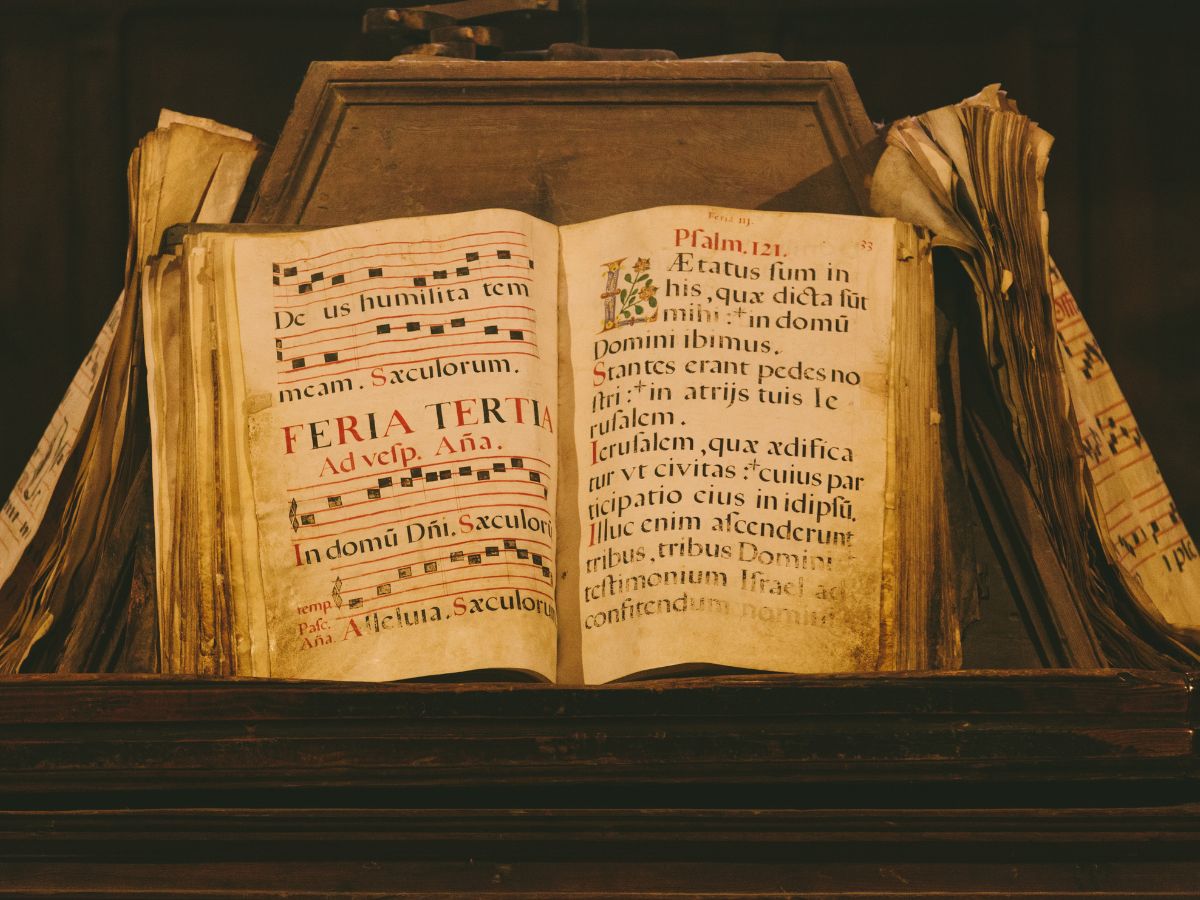 De us humilita tem
meam. Sæculorum.
FERIA TERTIA
Ad veſp. Aña.
In domū Dñi. Sæculorū
temp.
Paſc.
Aña. Alleluia. Sæculorum
Feria iij.
Pſalm. 121. 33
LÆtatus ſum in
his, quæ dicta ſūt
mihi :⁺ in domū
Domini ibimus.
Stantes erant pedes no
ſtri :⁺ in atrijs tuis Ie
ruſalem.
Ieruſalem, quæ ædifica
tur vt civitas :⁺ cuius par
ticipatio eius in idipſū.
Illuc enim aſcenderunt
tribus, tribus Domini :
teſtimonium Iſrael ad
confitendum nomini